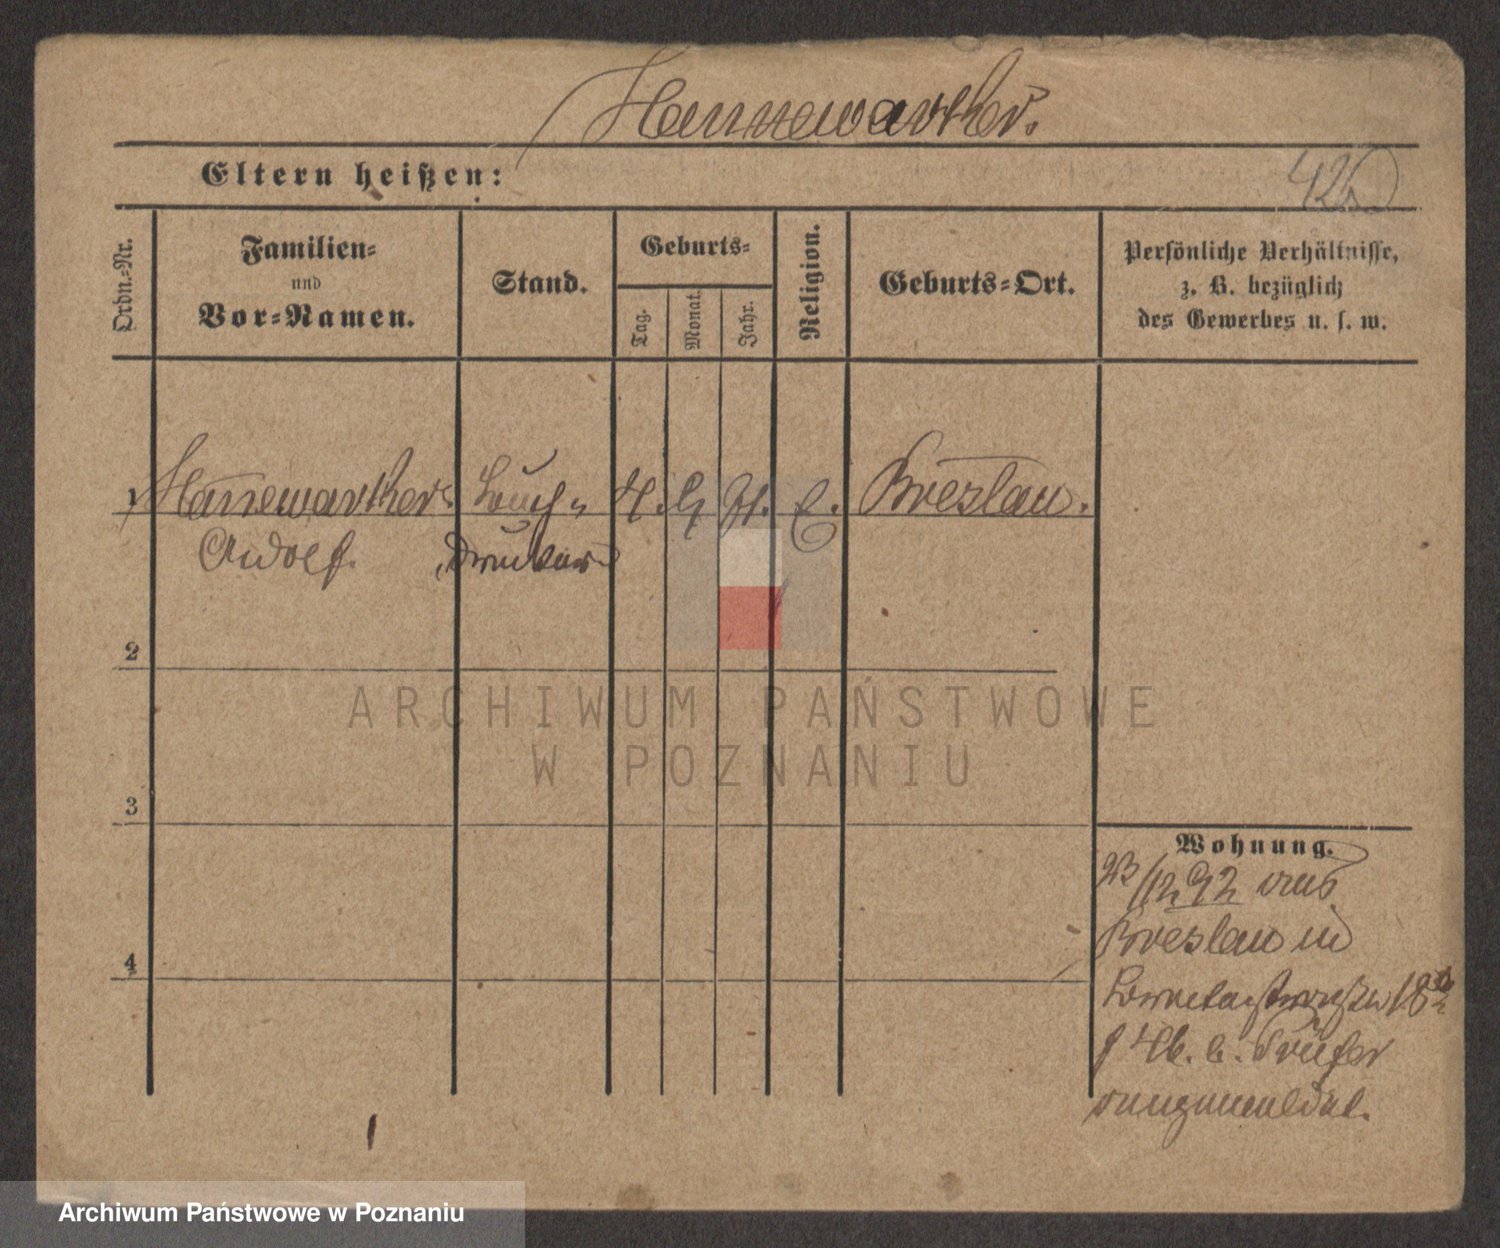 Hannewarther.
Eltern heißen:
426
Ordn.-Nr.
Familien-
und
Vor-Namen.
Stand.
Geburts-
Tag.
Monat.
Jahr.
Religion.
Geburts-Ort.
Persönliche Verhältnisse,
z. B. bezüglich
des Gewerbes u. s. w.
1 Hannewarther Buch- 4. 71. Breslau.
Adolf. drucker
2
3
4
Wohnung.
23/12 92 aus
Breslau in
18
b. Prüfer
angemeldet.
ARCHIWUM PAŃSTWOWE
W POZNANIU
Archiwum Państwowe w Poznaniu